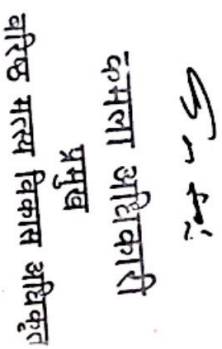 कमला अधिकारी
प्रमुख
वरिष्ठ मत्स्य विकास अधिकृत